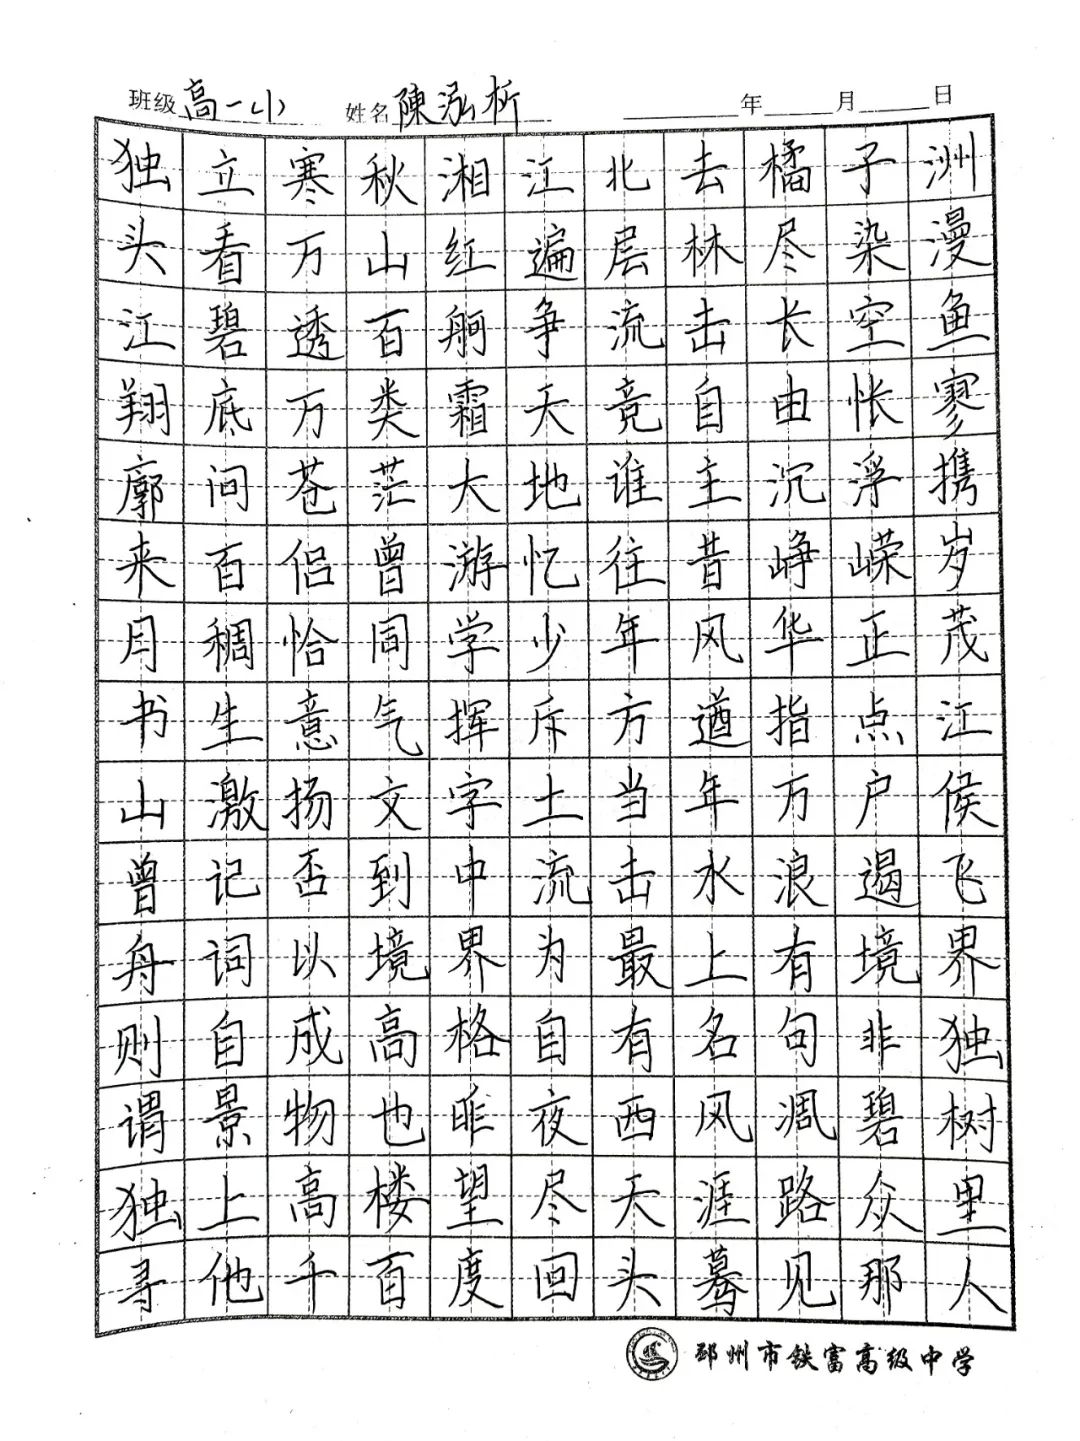 班级 高一(1) 姓名 陳泓析 年 月 日
独立寒秋湘江北去橘子洲
头看万山红遍层林尽染漫
江碧透百舸争流击长空鱼
翔底万类霜天竞自由怅寥
廓问苍茫大地谁主沉浮携
来百侣曾游忆往昔峥嵘岁
月稠恰同学少年风华正茂
书生意气挥斥方遒指点江
山激扬文字土当年万户侯
曾记否到中流击水浪遏飞
舟词以境界为最上有境界
则自成高格自有名句非独
谓景物也昨夜西风凋碧树
独上高楼望尽天涯路众里
寻他千百度回头蓦见那人
邳州市铁富高级中学